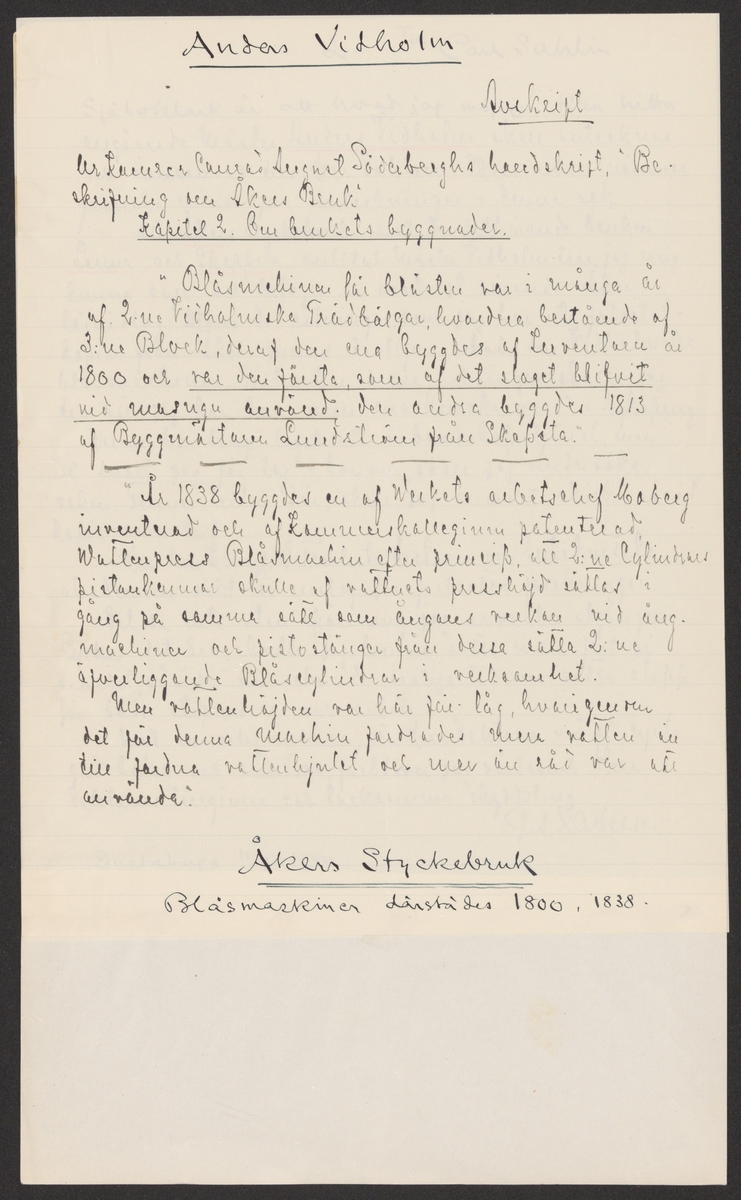 Anders Vidholm
Avskrift
Ur Kamrer Conrad August Söderberghs handskrift, "Be-
skrifning om Åkers Bruk"
Kapitel 2. Om brukets byggnader.
" Blåsmchinen för blästen var i många år
af 2:ne Vidholmska Trädbälgar, hvardera bestående af
3:ne Block, deraf den ena byggdes af Inventorn år
1800 och var den första, som af det slaget blifvit
vid masugn använd; den andra byggdes 1813
af Byggmästaren Lundström från Skepsta."
"År 1838 byggdes en af Werkets arbetschef Moberg
inventerad och af Kommerskollegium patenterad,
Wattenpress Blåsmachin efter princip, att 2:ne Cylindrars
pistonkannor skulle af vattnets presshöjd sättas i
gång på samma sätt som ångans verkan vid ång-
machiner och pistostänger från dessa sätta 2:ne
äfverliggande Blåscylindrar i verksamhet.
Men vattenhöjden var här för låg, hvarigenom
det för denna machin fordrades mera vatten än
till fordna vattenhjulet och mer än råd var att
använda".
Åkers Styckebruk
Blåsmaskiner därstädes 1800, 1838.